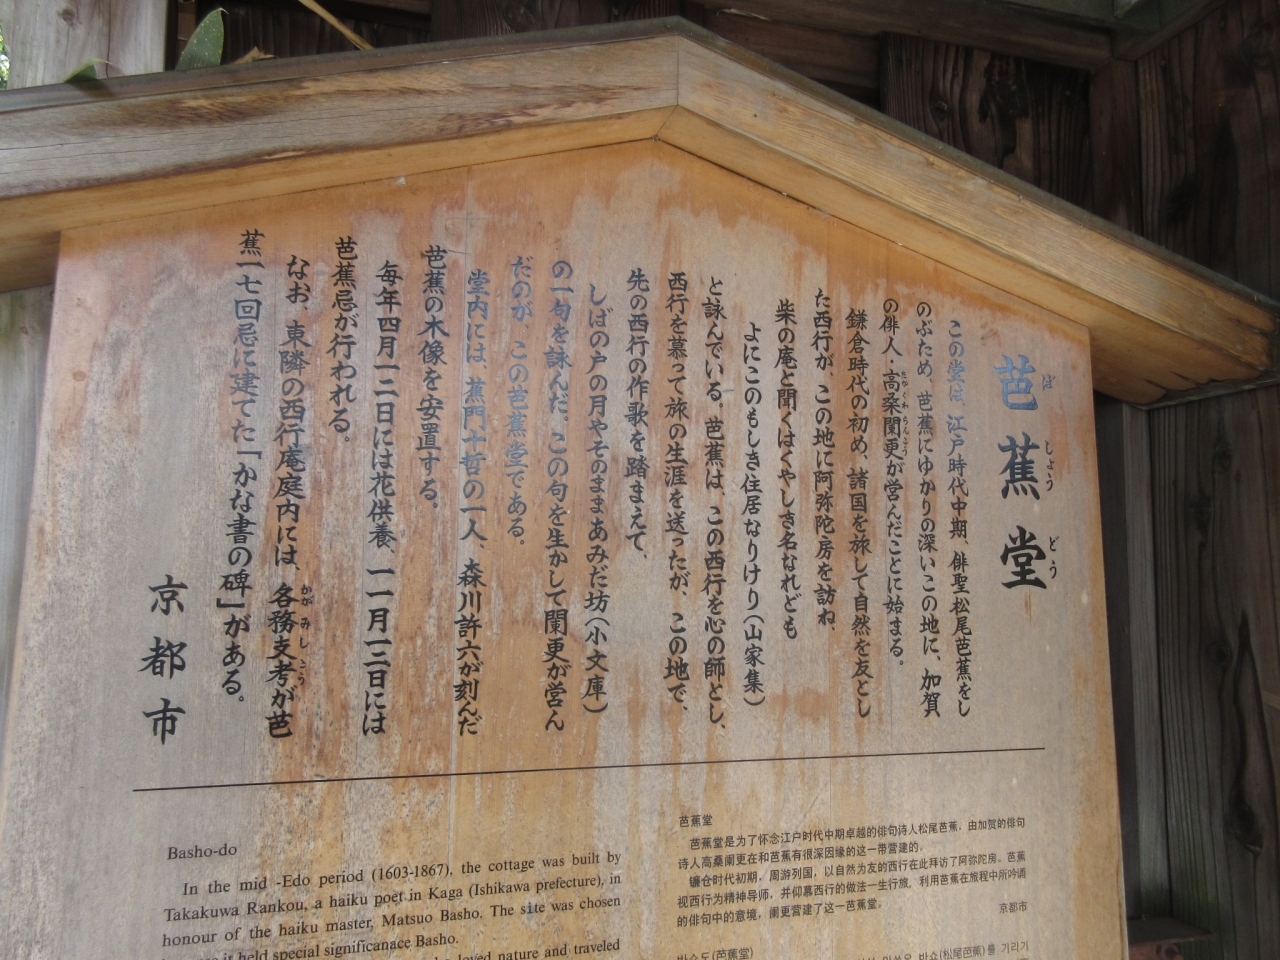 芭蕉堂
ばしょうどう
この堂は、江戸時代中期、俳聖松尾芭蕉をし
のぶため、芭蕉にゆかりの深いこの地に、加賀
の俳人・高桑闌更が営んだことに始まる。
たかくわらんこう
鎌倉時代の初め、諸国を旅して自然を友とし
た西行が、この地に阿弥陀房を訪ね、
柴の庵と聞くはくやしき名なれども
よにこのもしき住居なりけり(山家集)
と詠んでいる。芭蕉は、この西行を心の師とし、
西行を慕って旅の生涯を送ったが、この地で、
先の西行の作歌を踏まえて、
しばの戸の月やそのままあみだ坊(小文庫)
の一句を詠んだ。この句を生かして闌更が営ん
だのが、この芭蕉堂である。
堂内には、蕉門十哲の一人、森川許六が刻んだ
芭蕉の木像を安置する。
毎年四月一二日には花供養、一一月一二日には
芭蕉忌が行われる。
なお、東隣の西行庵庭内には、各務支考が芭
かがみしこう
蕉一七回忌に建てた「かな書の碑」がある。
京都市
Basho-do
In the mid -Edo period (1603-1867), the cottage was built by
Takakuwa Rankou, a haiku poet in Kaga (Ishikawa prefecture), in
honour of the haiku master, Matsuo Basho. The site was chosen
it held special significanace Basho.
loved nature and traveled
芭蕉堂
芭蕉堂是为了怀念江户时代中期卓越的俳句诗人松尾芭蕉，由加贺的俳句
诗人高桑阑更在和芭蕉有很深因缘的这一带营建的。
镰仓时代初期，周游列国，以自然为友的西行在此拜访了阿弥陀房。芭蕉
视西行为精神导师，并仰慕西行的做法一生行旅。利用芭蕉在旅程中所吟诵
的俳句中的意境，阑更营建了这一芭蕉堂。
京都市
바쇼도(芭蕉堂)
바쇼(松尾芭蕉)를 기리기